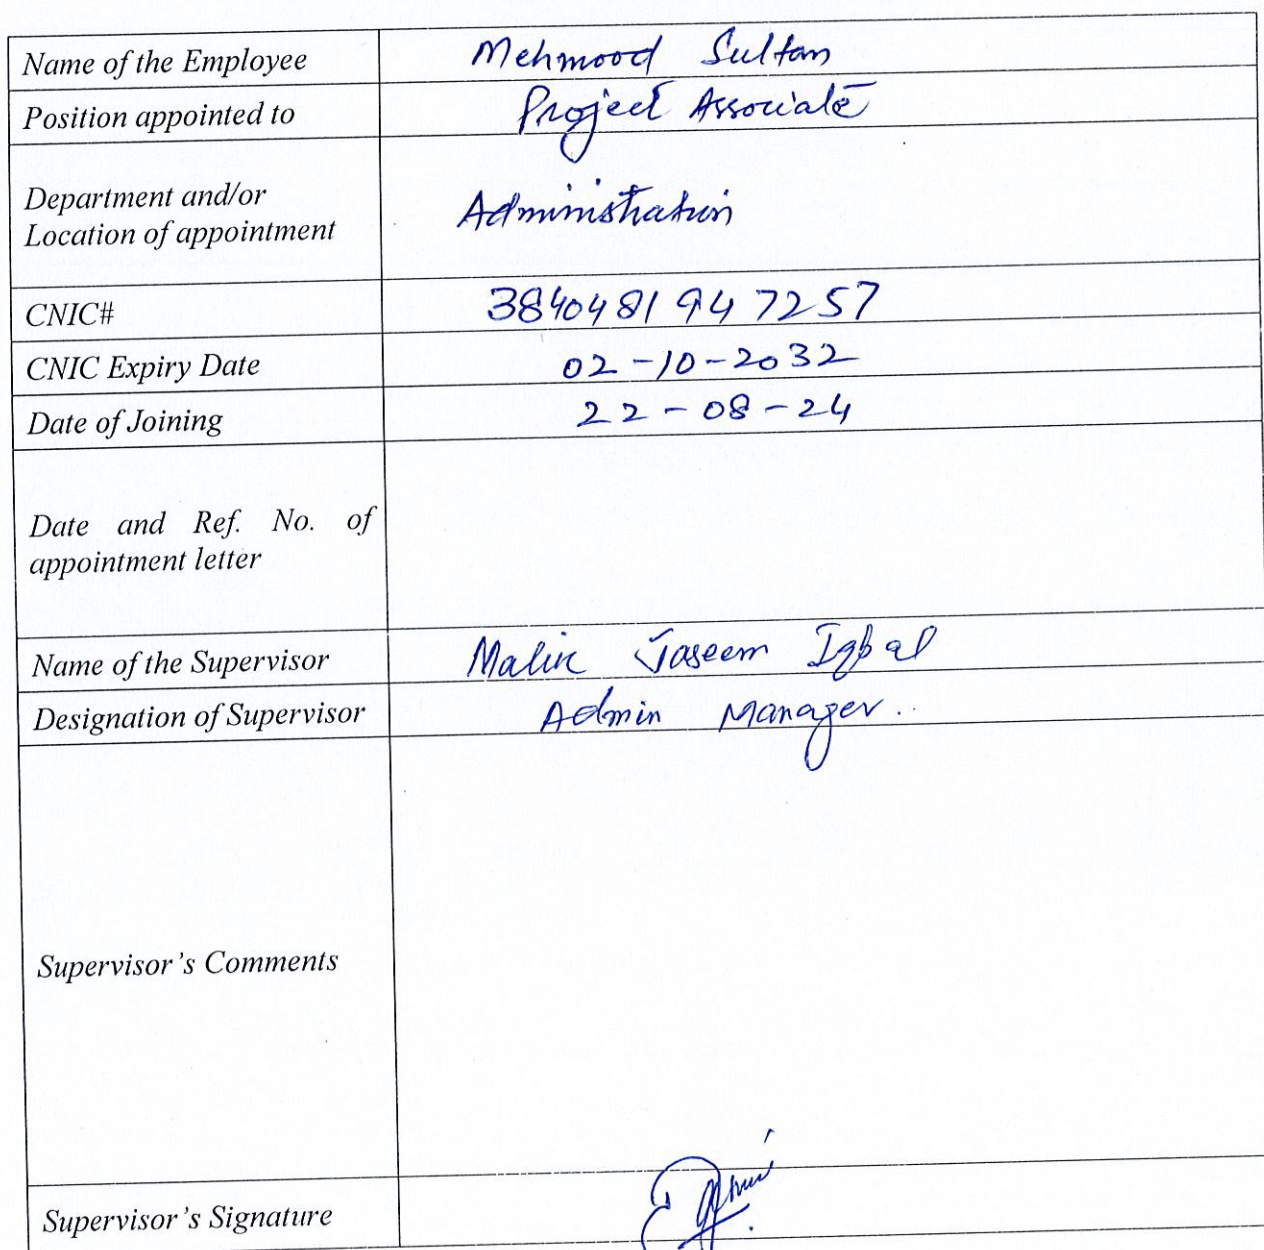 Name of the Employee Mehmood Sultan
Position appointed to Project Associate
Department and/or
Location of appointment Administration
CNIC# 3840481947257
CNIC Expiry Date 02-10-2032
Date of Joining 22-08-24
Date and Ref. No. of
appointment letter
Name of the Supervisor Malik Jaseem Iqbal
Designation of Supervisor Admin Manager.
Supervisor's Comments
Supervisor's Signature